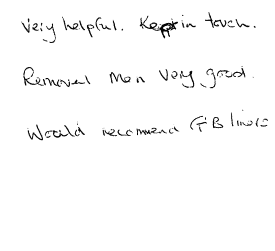 Very helpful. Kept in touch.
Removal Men Very good.
Would recommend GB liners